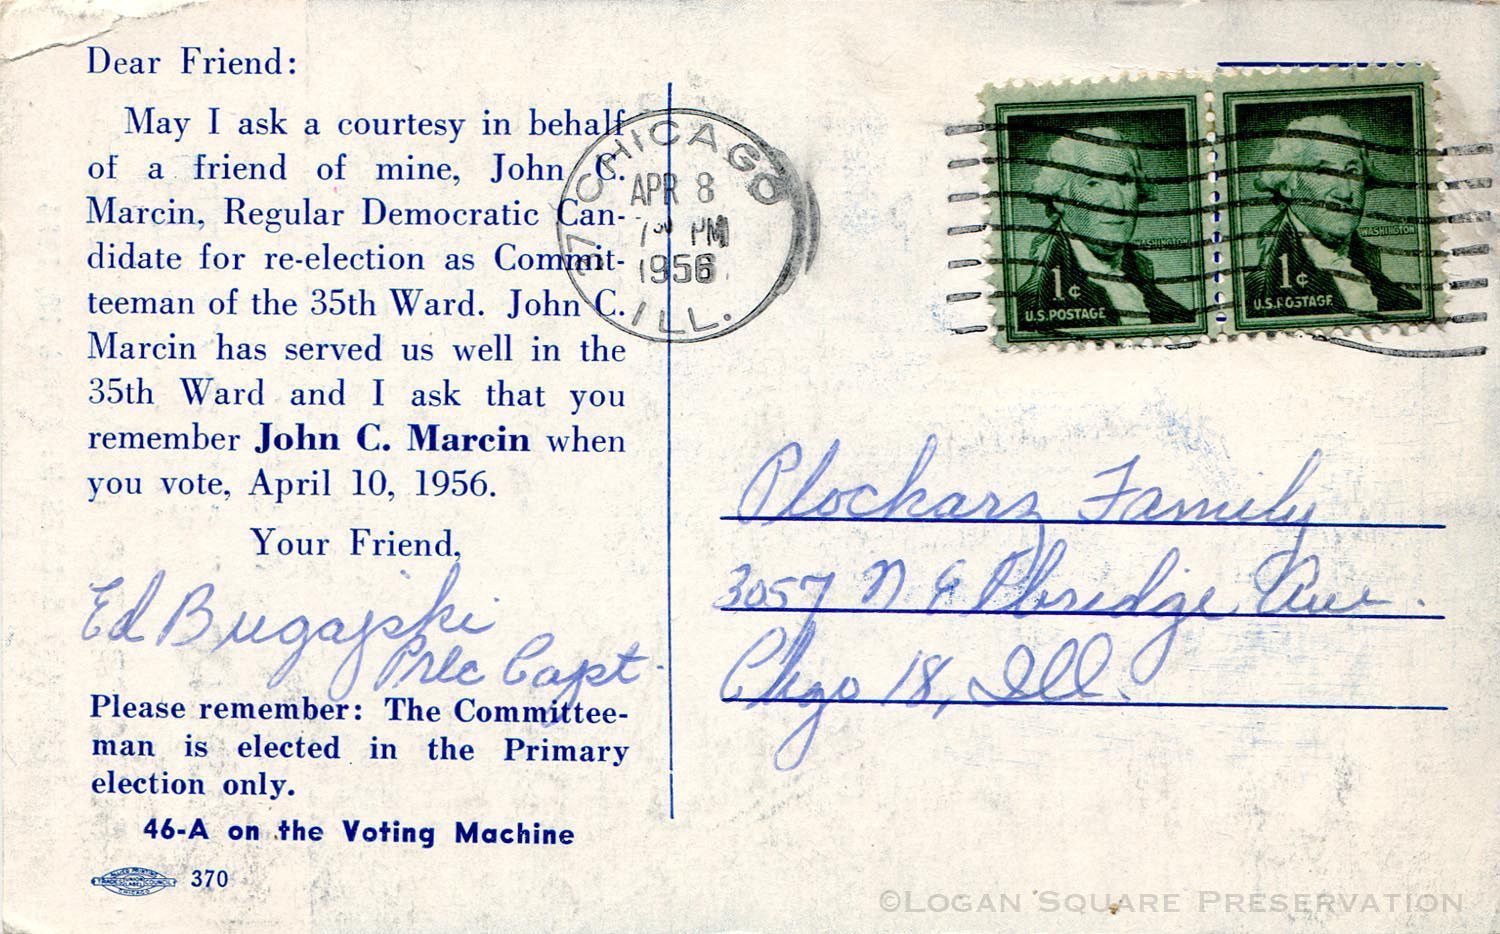 Dear Friend:
May I ask a courtesy in behalf
of a friend of mine, John C.
Marcin, Regular Democratic Can-
didate for re-election as Commit-
teeman of the 35th Ward. John C.
Marcin has served us well in the
35th Ward and I ask that you
remember John C. Marcin when
you vote, April 10, 1956.
Your Friend,
Ed Bugajski
Prec Capt.
Please remember: The Committee-
man is elected in the Primary
election only.
46-A on the Voting Machine
ALLIED PRINTING
TRADES UNION LABEL COUNCIL
CHICAGO
370
CHICAGO
APR 8
PM
1956
ILL.
WASHINGTON
1¢
U.S. POSTAGE
WASHINGTON
1¢
U.S. POSTAGE
Plockarz Family
3057 N Elbridge Ave.
Chgo 18, Ill.
©LOGAN SQUARE PRESERVATION